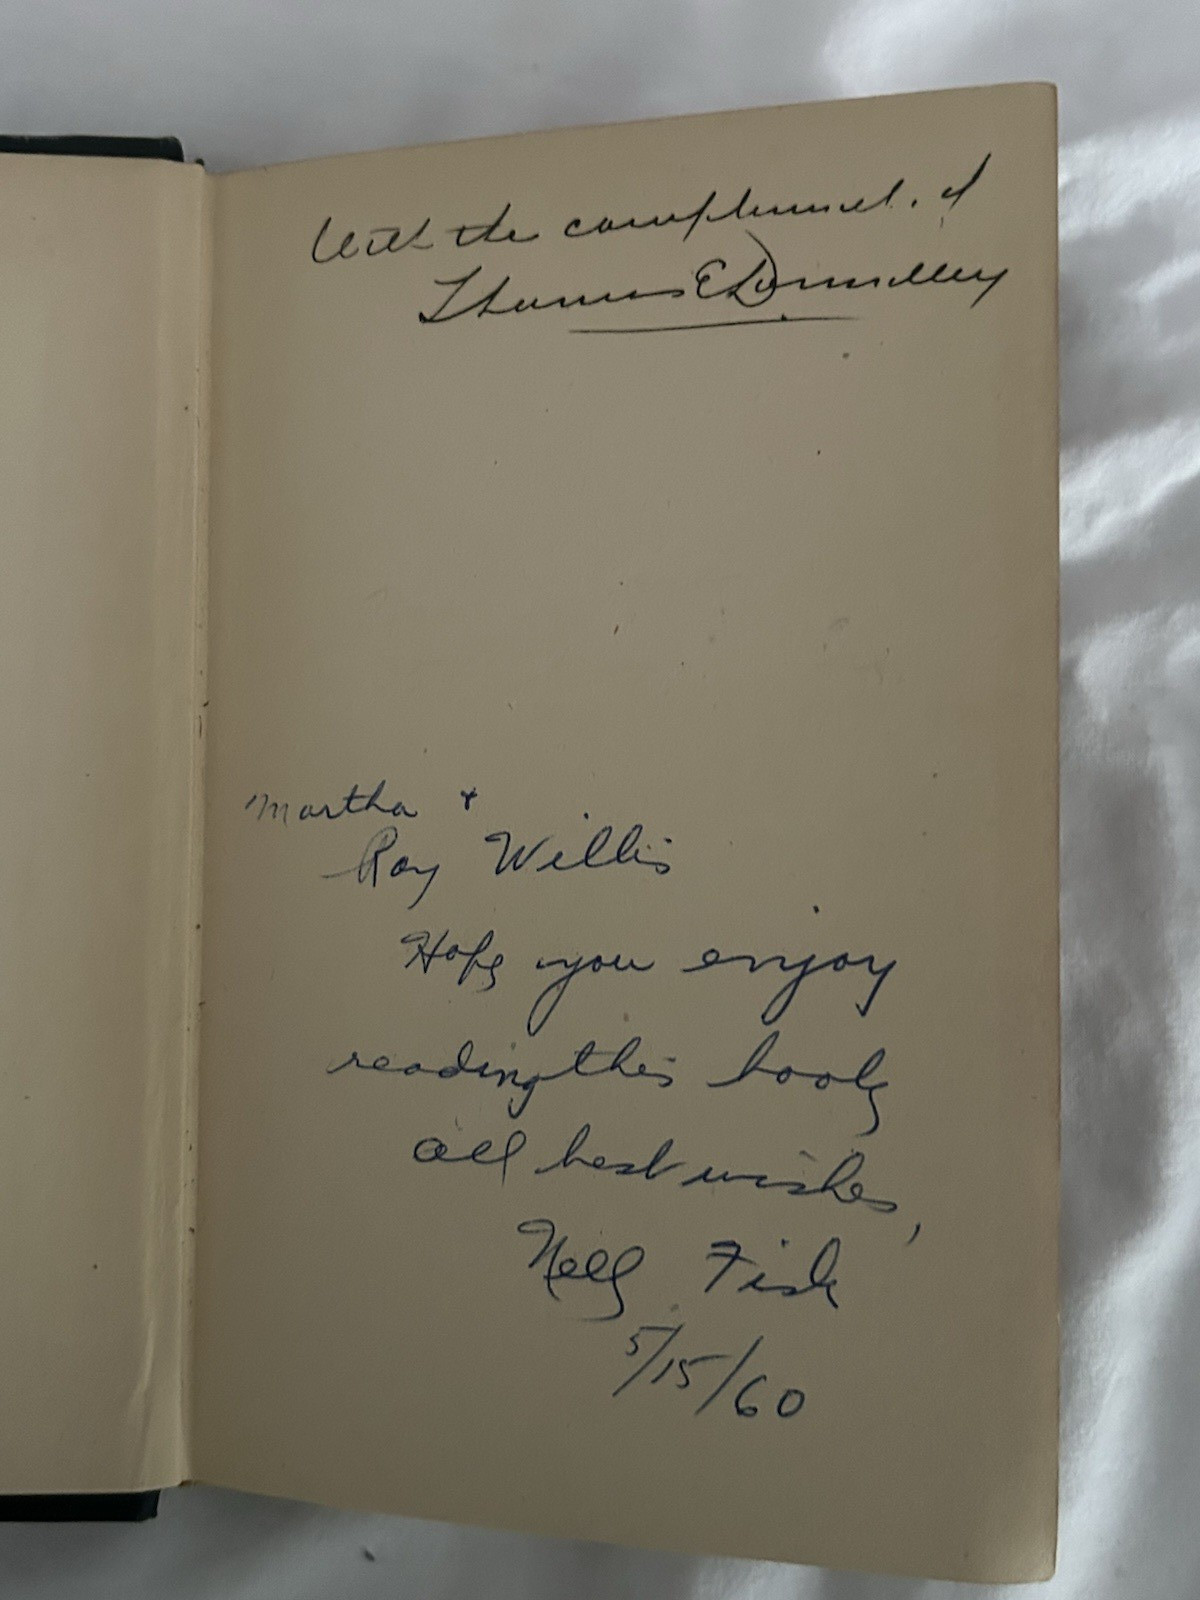 With the compliments of
Thomas E Donnelley
Martha +
Roy Willis
Hope you enjoy
reading this book
all best wishes,
Nell Fisk
5/15/60